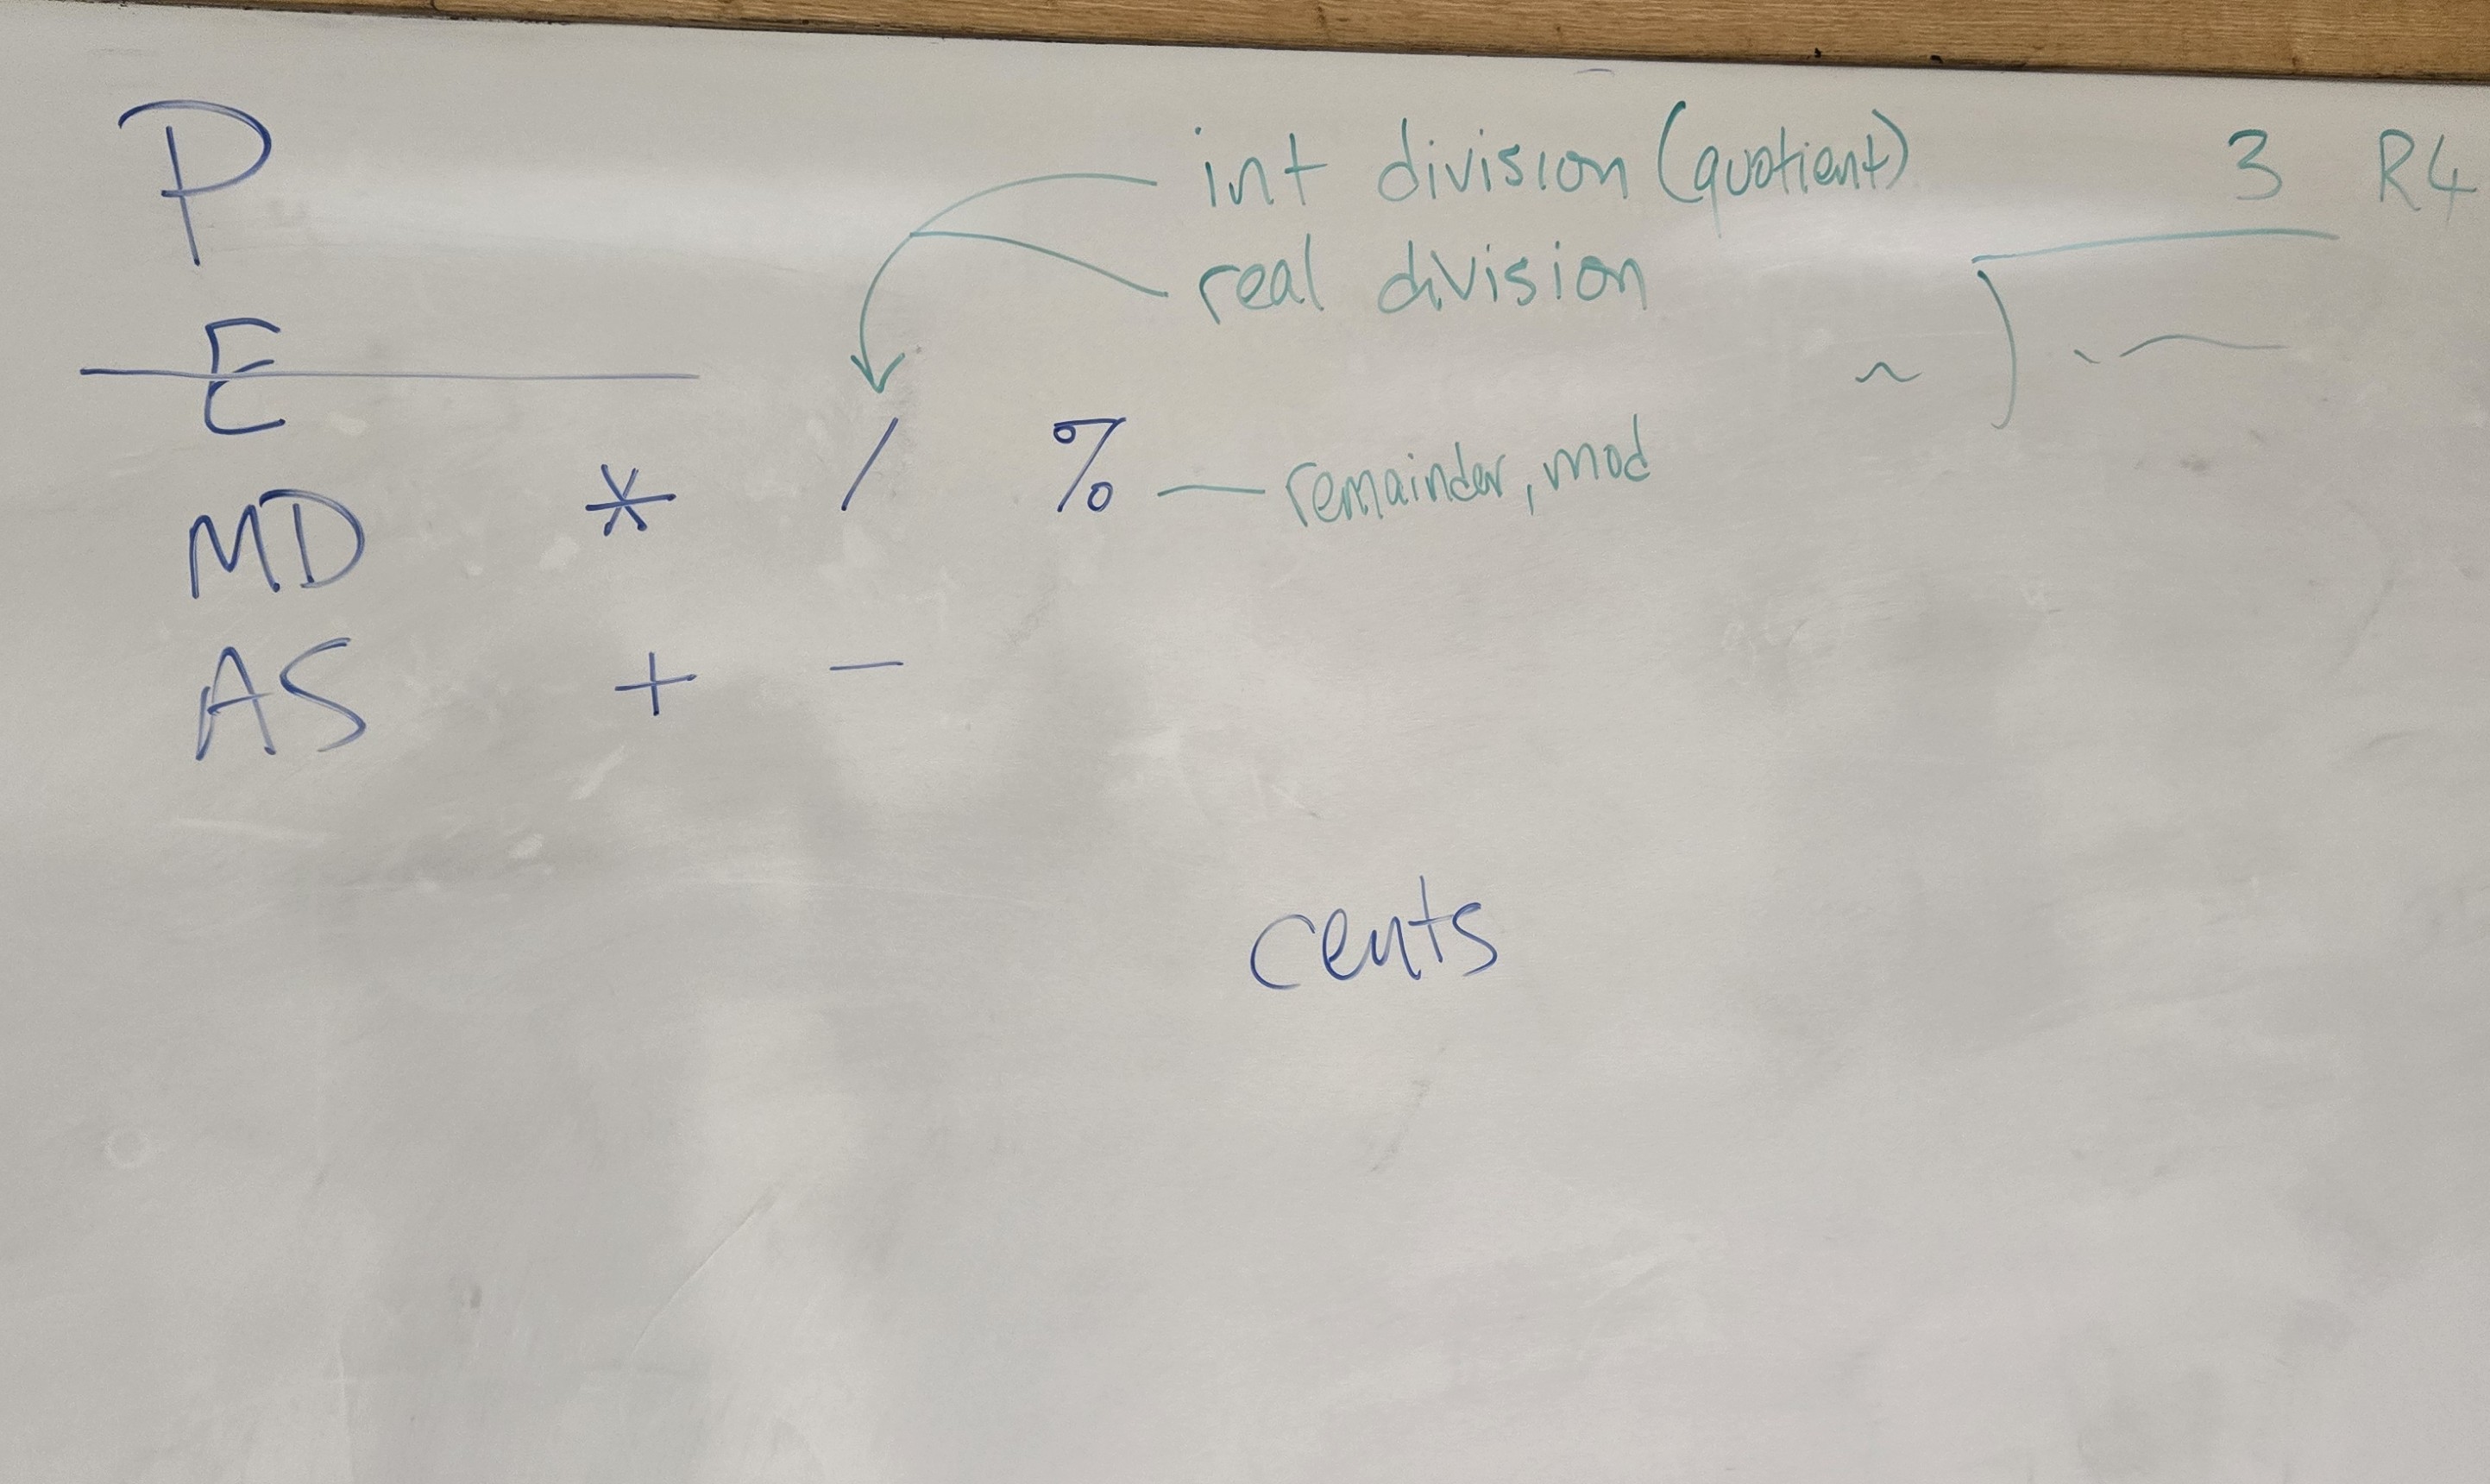 P
int division (quotient)
real division
3 R4
E
MD * / % — remainder, mod
AS + −
cents